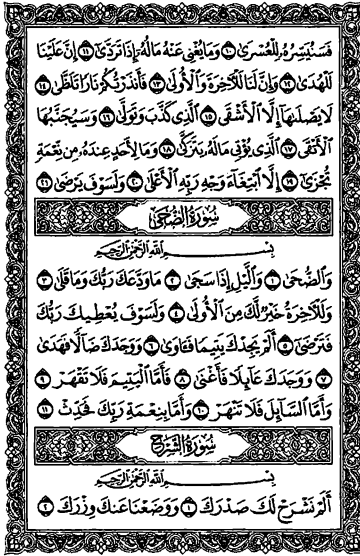 فَسَنُيَسِّرُهُۥ لِلْعُسْرَىٰ ١٠ وَمَا يُغْنِي عَنْهُ مَالُهُۥٓ إِذَا تَرَدَّىٰٓ ١١ إِنَّ عَلَيْنَا
لَلْهُدَىٰ ١٢ وَإِنَّ لَنَا لَلْـَٔاخِرَةَ وَٱلْأُولَىٰ ١٣ فَأَنذَرْتُكُمْ نَارًا تَلَظَّىٰ ١٤
لَا يَصْلَىٰهَآ إِلَّا ٱلْأَشْقَى ١٥ ٱلَّذِي كَذَّبَ وَتَوَلَّىٰ ١٦ وَسَيُجَنَّبُهَا
ٱلْأَتْقَى ١٧ ٱلَّذِي يُؤْتِي مَالَهُۥ يَتَزَكَّىٰ ١٨ وَمَا لِأَحَدٍ عِندَهُۥ مِن نِّعْمَةٍ
تُجْزَىٰٓ ١٩ إِلَّا ٱبْتِغَآءَ وَجْهِ رَبِّهِ ٱلْأَعْلَىٰ ٢٠ وَلَسَوْفَ يَرْضَىٰ ٢١
سُورَةُ الضُّحَى
بِسْمِ ٱللَّهِ ٱلرَّحْمَٰنِ ٱلرَّحِيمِ
وَٱلضُّحَىٰ ١ وَٱلَّيْلِ إِذَا سَجَىٰ ٢ مَا وَدَّعَكَ رَبُّكَ وَمَا قَلَىٰ ٣
وَلَلْـَٔاخِرَةُ خَيْرٌ لَّكَ مِنَ ٱلْأُولَىٰ ٤ وَلَسَوْفَ يُعْطِيكَ رَبُّكَ
فَتَرْضَىٰٓ ٥ أَلَمْ يَجِدْكَ يَتِيمًا فَـَٔاوَىٰ ٦ وَوَجَدَكَ ضَآلًّا فَهَدَىٰ
٧ وَوَجَدَكَ عَآئِلًا فَأَغْنَىٰ ٨ فَأَمَّا ٱلْيَتِيمَ فَلَا تَقْهَرْ ٩
وَأَمَّا ٱلسَّآئِلَ فَلَا تَنْهَرْ ١٠ وَأَمَّا بِنِعْمَةِ رَبِّكَ فَحَدِّثْ ١١
سُورَةُ الشَّرْحِ
بِسْمِ ٱللَّهِ ٱلرَّحْمَٰنِ ٱلرَّحِيمِ
أَلَمْ نَشْرَحْ لَكَ صَدْرَكَ ١ وَوَضَعْنَا عَنكَ وِزْرَكَ ٢